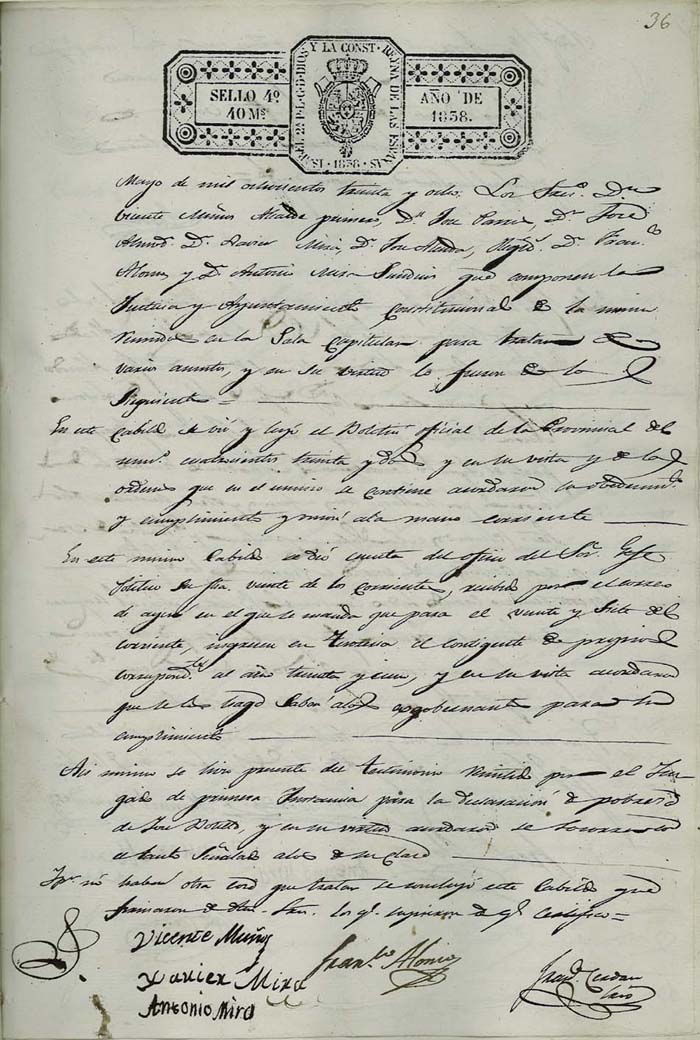 36
YSABEL 2ª P.L.G.D.DIOS Y LA CONST. REYNA DE LAS ESPAÑAS 1838
SELLO 4º
40 Ms
AÑO DE
1838.
Mayo de mil ochocientos treinta y ocho. Los Sres. Dn
Vicente Muños Alcalde primero, Dn Jose Dn Jose
D. Xavier Mira, Dn Jose Regid. D. Franco
Alonso, y D. Antonio Mira Sindico que componen la
Justicia y Ayuntamiento Constitucional de la misma
reunidos en la Sala Capitular para tratar de
varios asuntos, y en su virtud lo fueron de lo
siguiente =
En este Cabildo se vió y leyó el Boletin oficial de la Provincia del
num. cuatrocientos treinta y dos y en su vista y de las
ordenes que en el mismo se contiene acordaron la obedienc.
y cumplimiento y unir á la mano corriente
En este mismo Cabildo se dió cuenta del oficio del Sor Gefe
Politico su fha. veinte de los corrientes, recibido por el correo
de ayer en el que se manda que para el veinte y siete del
corriente, ingresen en Tesoreria el contigente de propios
correspond.te al año treinta y seis, y en su vista acordaron
que se les haga saber á los para su
cumplimiento
Asi mismo se hizo presente del testimonio remitido por el Juz-
gado de primera Instancia para la declaracion de pobresa
de Jose y en su virtud acordaron se
el tanto señalado á los de su clase
Y por no haber otra cosa que tratar se concluyó este Cabildo que
firmaron de dhos. Sres. los q.e supieron de q.e Certifico =
Vicente Muños
Xavier Mira
Antonio Mira
Fran.co Alonso
Srio